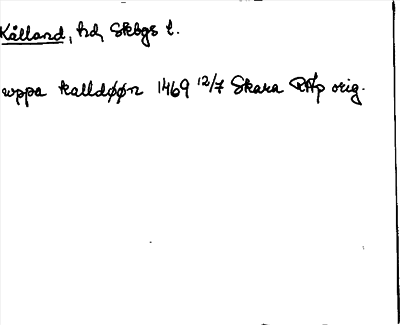 Kålland, hd, Skbgs l.
uppa kalldøøn 1469 12/7 Skara RAp orig.